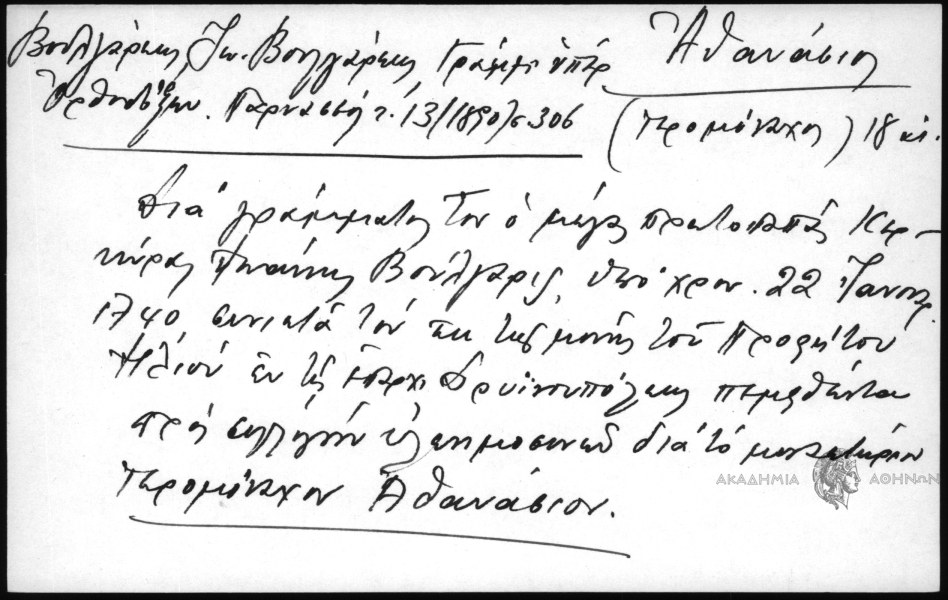 Βουλγάρεως, Ἰω. Βουλγάρεως Γράμμα ὑπὲρ
Ὀρθοδόξων. Παρνασσός τ. 13/(1890)/σ. 306
Ἀθανάσιος
(Ἱερομόναχος) 18 αἰ.
Διὰ γράμματός του ὁ μέγας πρωτοπαπᾶς Κερ-
κύρας Ἰωάννης Βούλγαρις, ὑπὸ χρον. 22 Ἰανουαρ.
1740, συνιστᾷ τὸν ἐκ τῆς μονῆς τοῦ Προφήτου
Ἠλιοὺ ἐν τῇ ἐπαρχ. Δρυϊνουπόλεως πεμφθέντα
πρὸς συλλογὴν ἐλεημοσυνῶν διὰ τὸ μοναστήριον
ἱερομόναχον Ἀθανάσιον.
ΑΚΑΔΗΜΙΑ ΑΘΗΝΩΝ